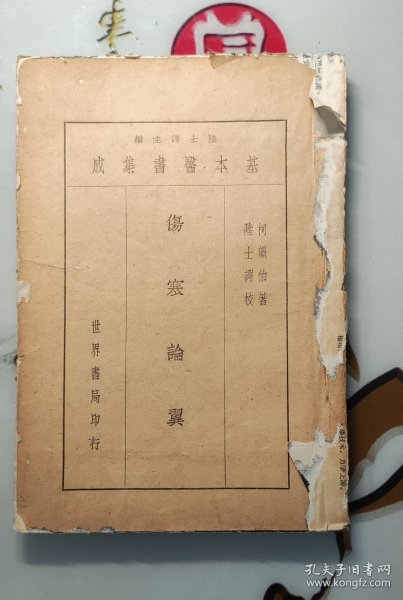 陸士諤主編
基本醫書集成
柯韻伯著
陸士諤校
傷寒論翼
世界書局印行
孔夫子旧书网
www.kongfz.com